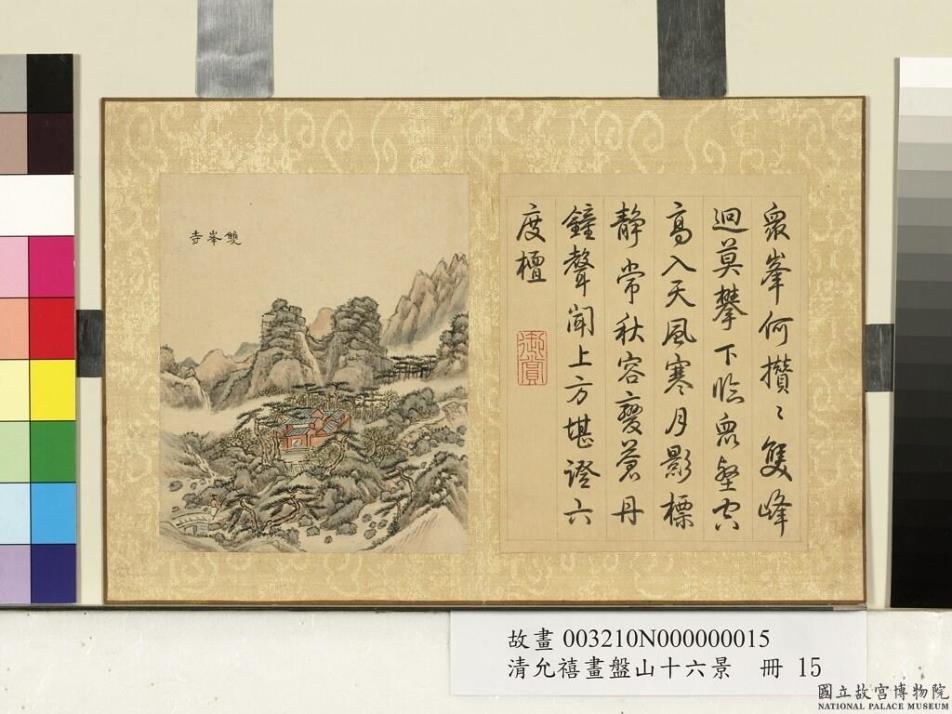 雙峯寺
眾峯何攢〻雙峰
逈莫攀下臨眾壑空
高入天風寒月影標
靜常秋容變蒼丹
鐘聲聞上方堪證六
度檀
御賞
故畫 003210N000000015
清允禧畫盤山十六景 冊 15
國立故宮博物院
NATIONAL PALACE MUSEUM